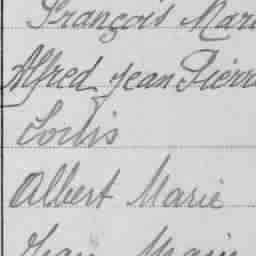 François Mari
Alfred Jean Pierre
Louis
Albert Marie
Jean